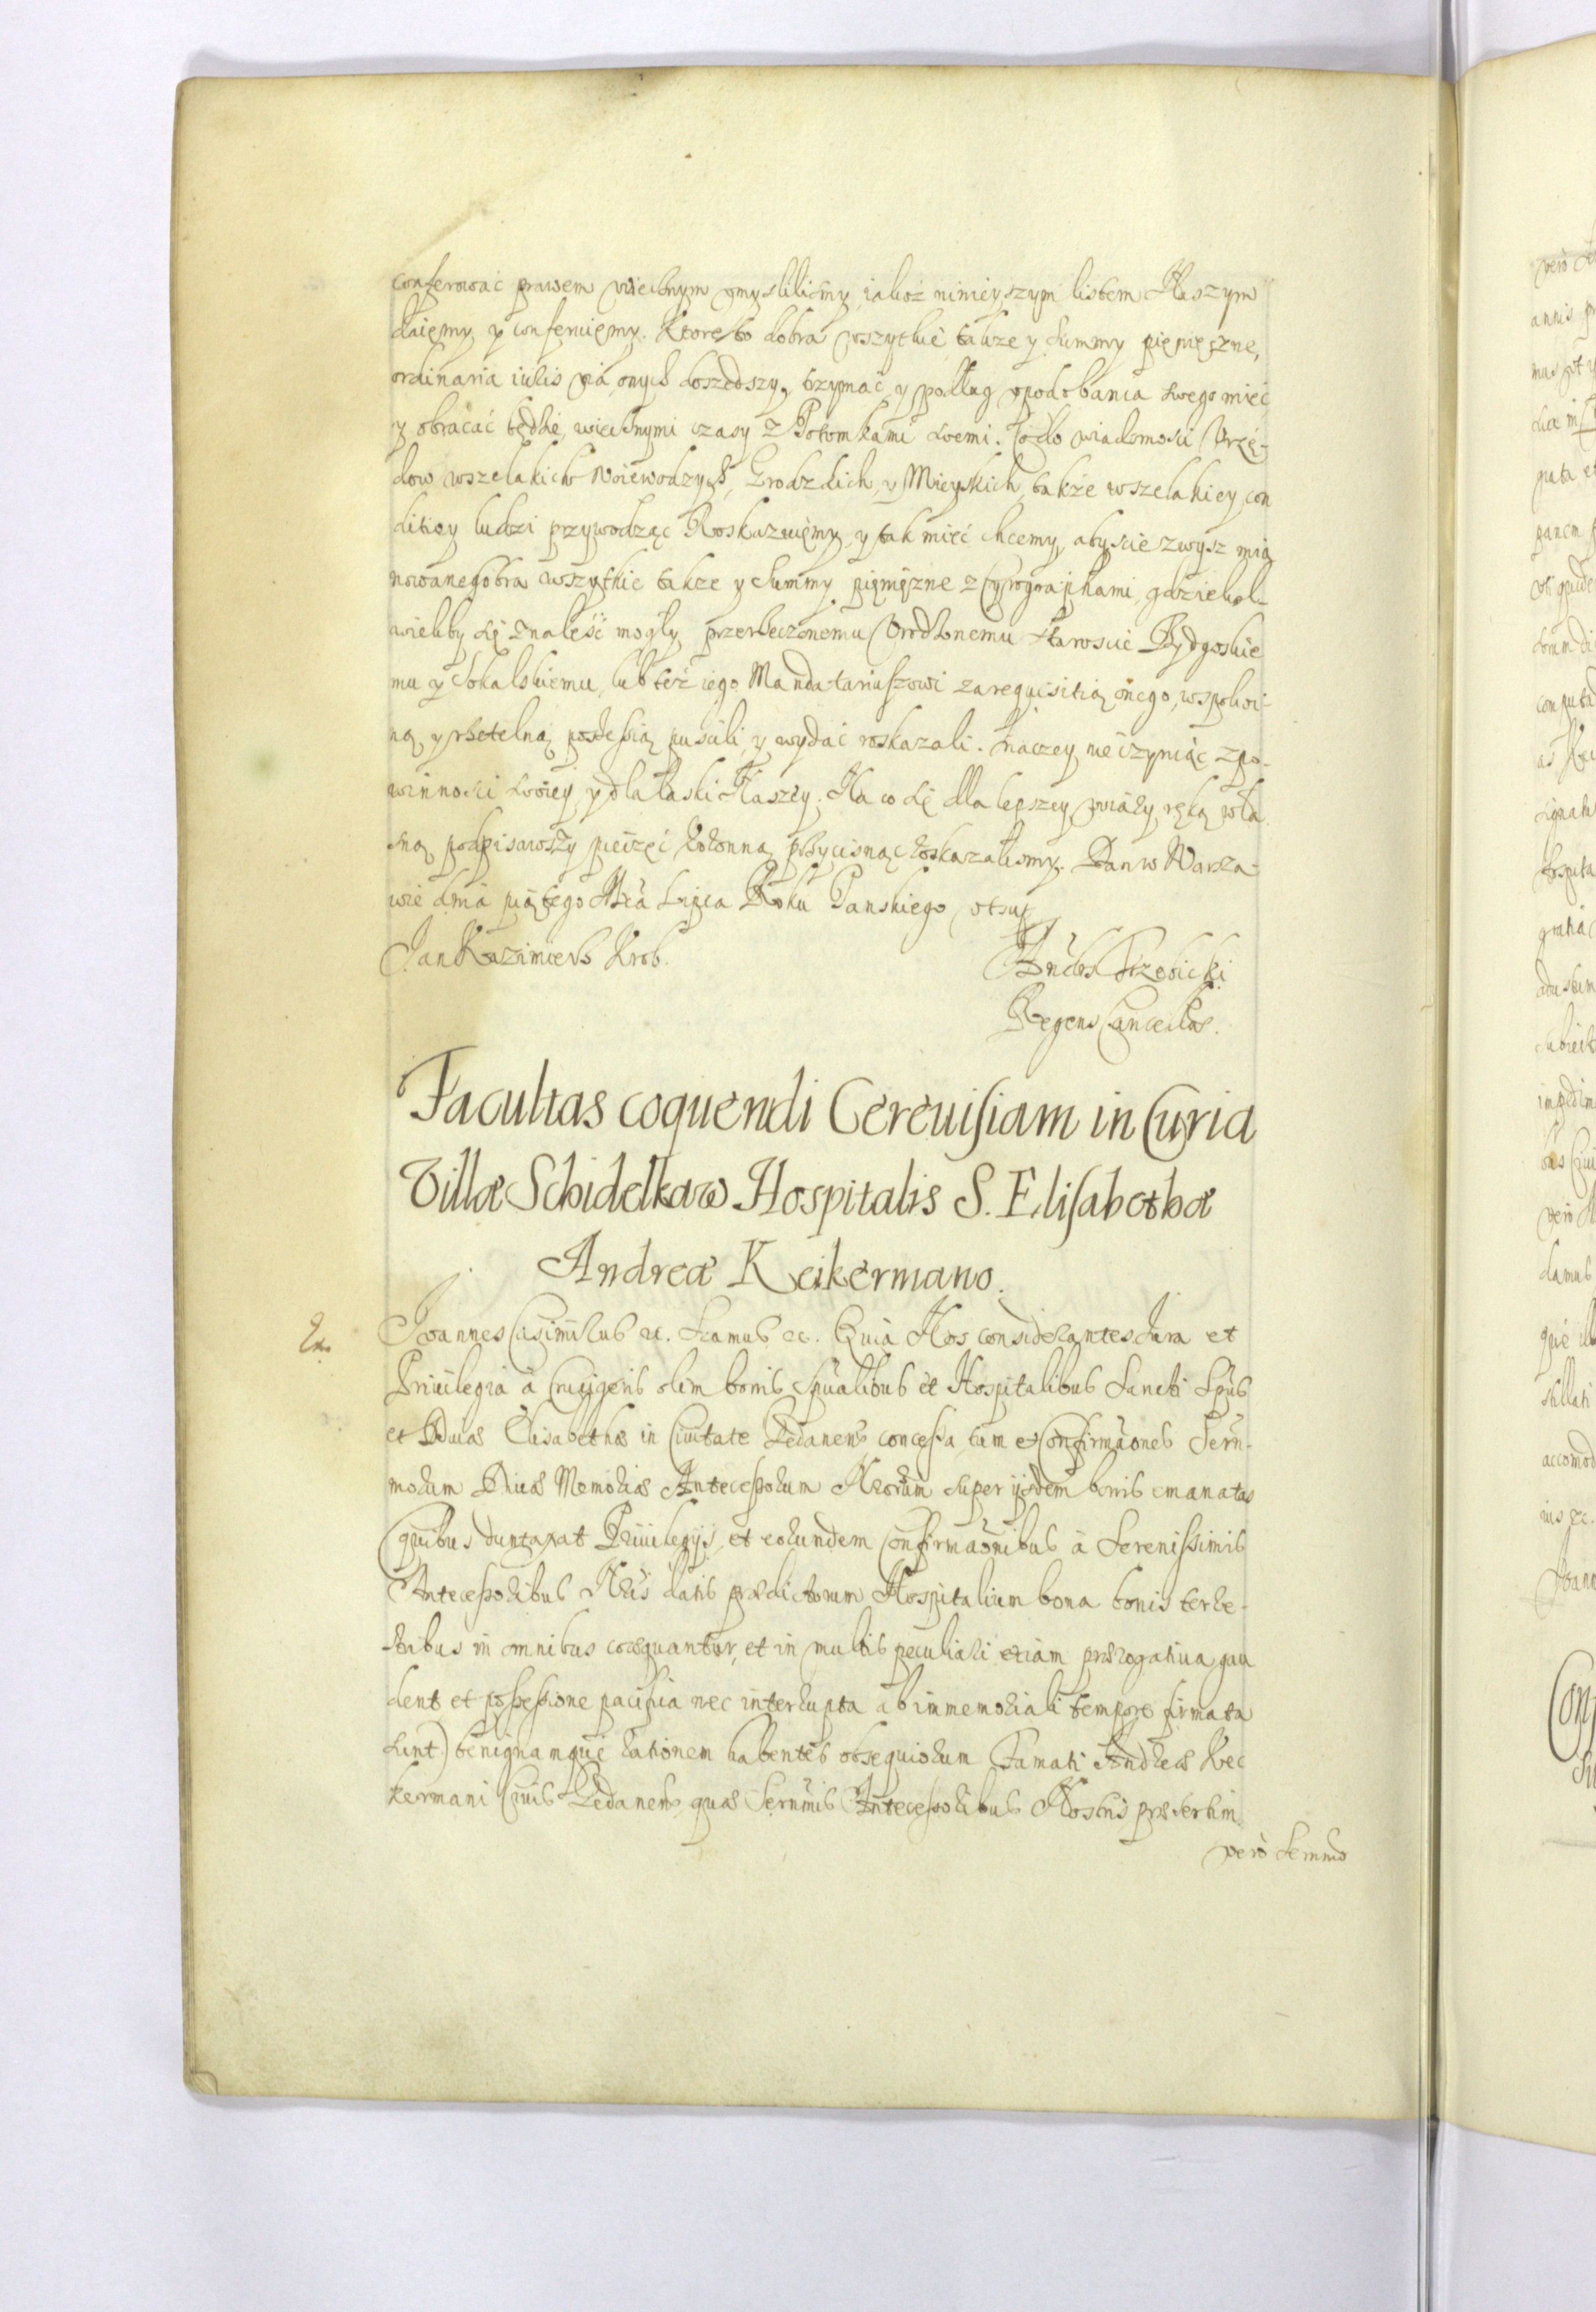 conferować prawem wiecznym umyslilismy, iakoż ninieyszym listem Naszym
daięmy y conferuięmy. Ktore to dobra wszytkie także y summy pięnięzne,
ordinaria iuris via onych doszedszy, trzymać y podług upodobania swego mieć
y obracać będzie, wiecznymi czasy z Potomkami swemi. Co do wiadomosci Urzę-
dow wszelakich Woiewodzych, Grodzkich, y Mieyskich, także wszelakiey con
ditiey ludzi przywodząc Roskazuięmy, y tak mieć chcemy, abyscie zwysz mia
nowane dobra wszytkie także y summy pięnięzne z Cyrographami, gdziekol-
wiekby się znaleść mogły, przerzeczonemu Urodzonemu Staroscie Bydgoskie
mu y Sokalskiemu, lub też iego Mandatariuszowi za requisitią onego, w spokoi-
ną y rzetelną possessią puscili, y wydać roskazali. Inaczey nie czyniąc z po-
winnosci swoiey, y dla łaski Naszey. Na co się dla lepszey wiary, ręką wła
sną podpisawszy pieczęć koronną przycisnąc roskazalismy. Dan w Warsza-
wie dnia piątego Mca Lipca Roku Panskiego, ut supra
Jan Kazimierz Krol.
Andreas Trzebicki
Regens Cancellae.
Facultas coquendi Cereuisiam in Curia
Villæ Schidelkaw Hospitalis S. Elisabethæ
Andreæ Keikermano.
Joannes Casimirus etc. Quia Nos considerantes Jura et
Priuilegia à Crucigeris olim bonis Spualibus et Hospitalibus Sancti Spūs
et Diuæ Elisabethæ in Ciuitate Gedanensi concessa, tum et Confirmaones Seren-
morum Diuæ Memoriæ Antecessorum Nrorum super ijsdem bonis emanatas
(quibus duntaxat Priuilegijs, et eorundem Confirmaonibus à Serenissimis
Antecessoribus Nris datis prædictorum Hospitalium bona bonis terre-
stribus in omnibus coæquantur, et in multis peculiari etiam prærogatiua gau
dent et possessione pacifica nec interrupta ab immemoriali tempore firmata
sunt) benignamque rationem habentes obsequiorum Famati Andreæ Kec
kermani Ciuis Gedanensis, quæ Sernmis Antecessoribus Nostris præsertim
vero Sermo